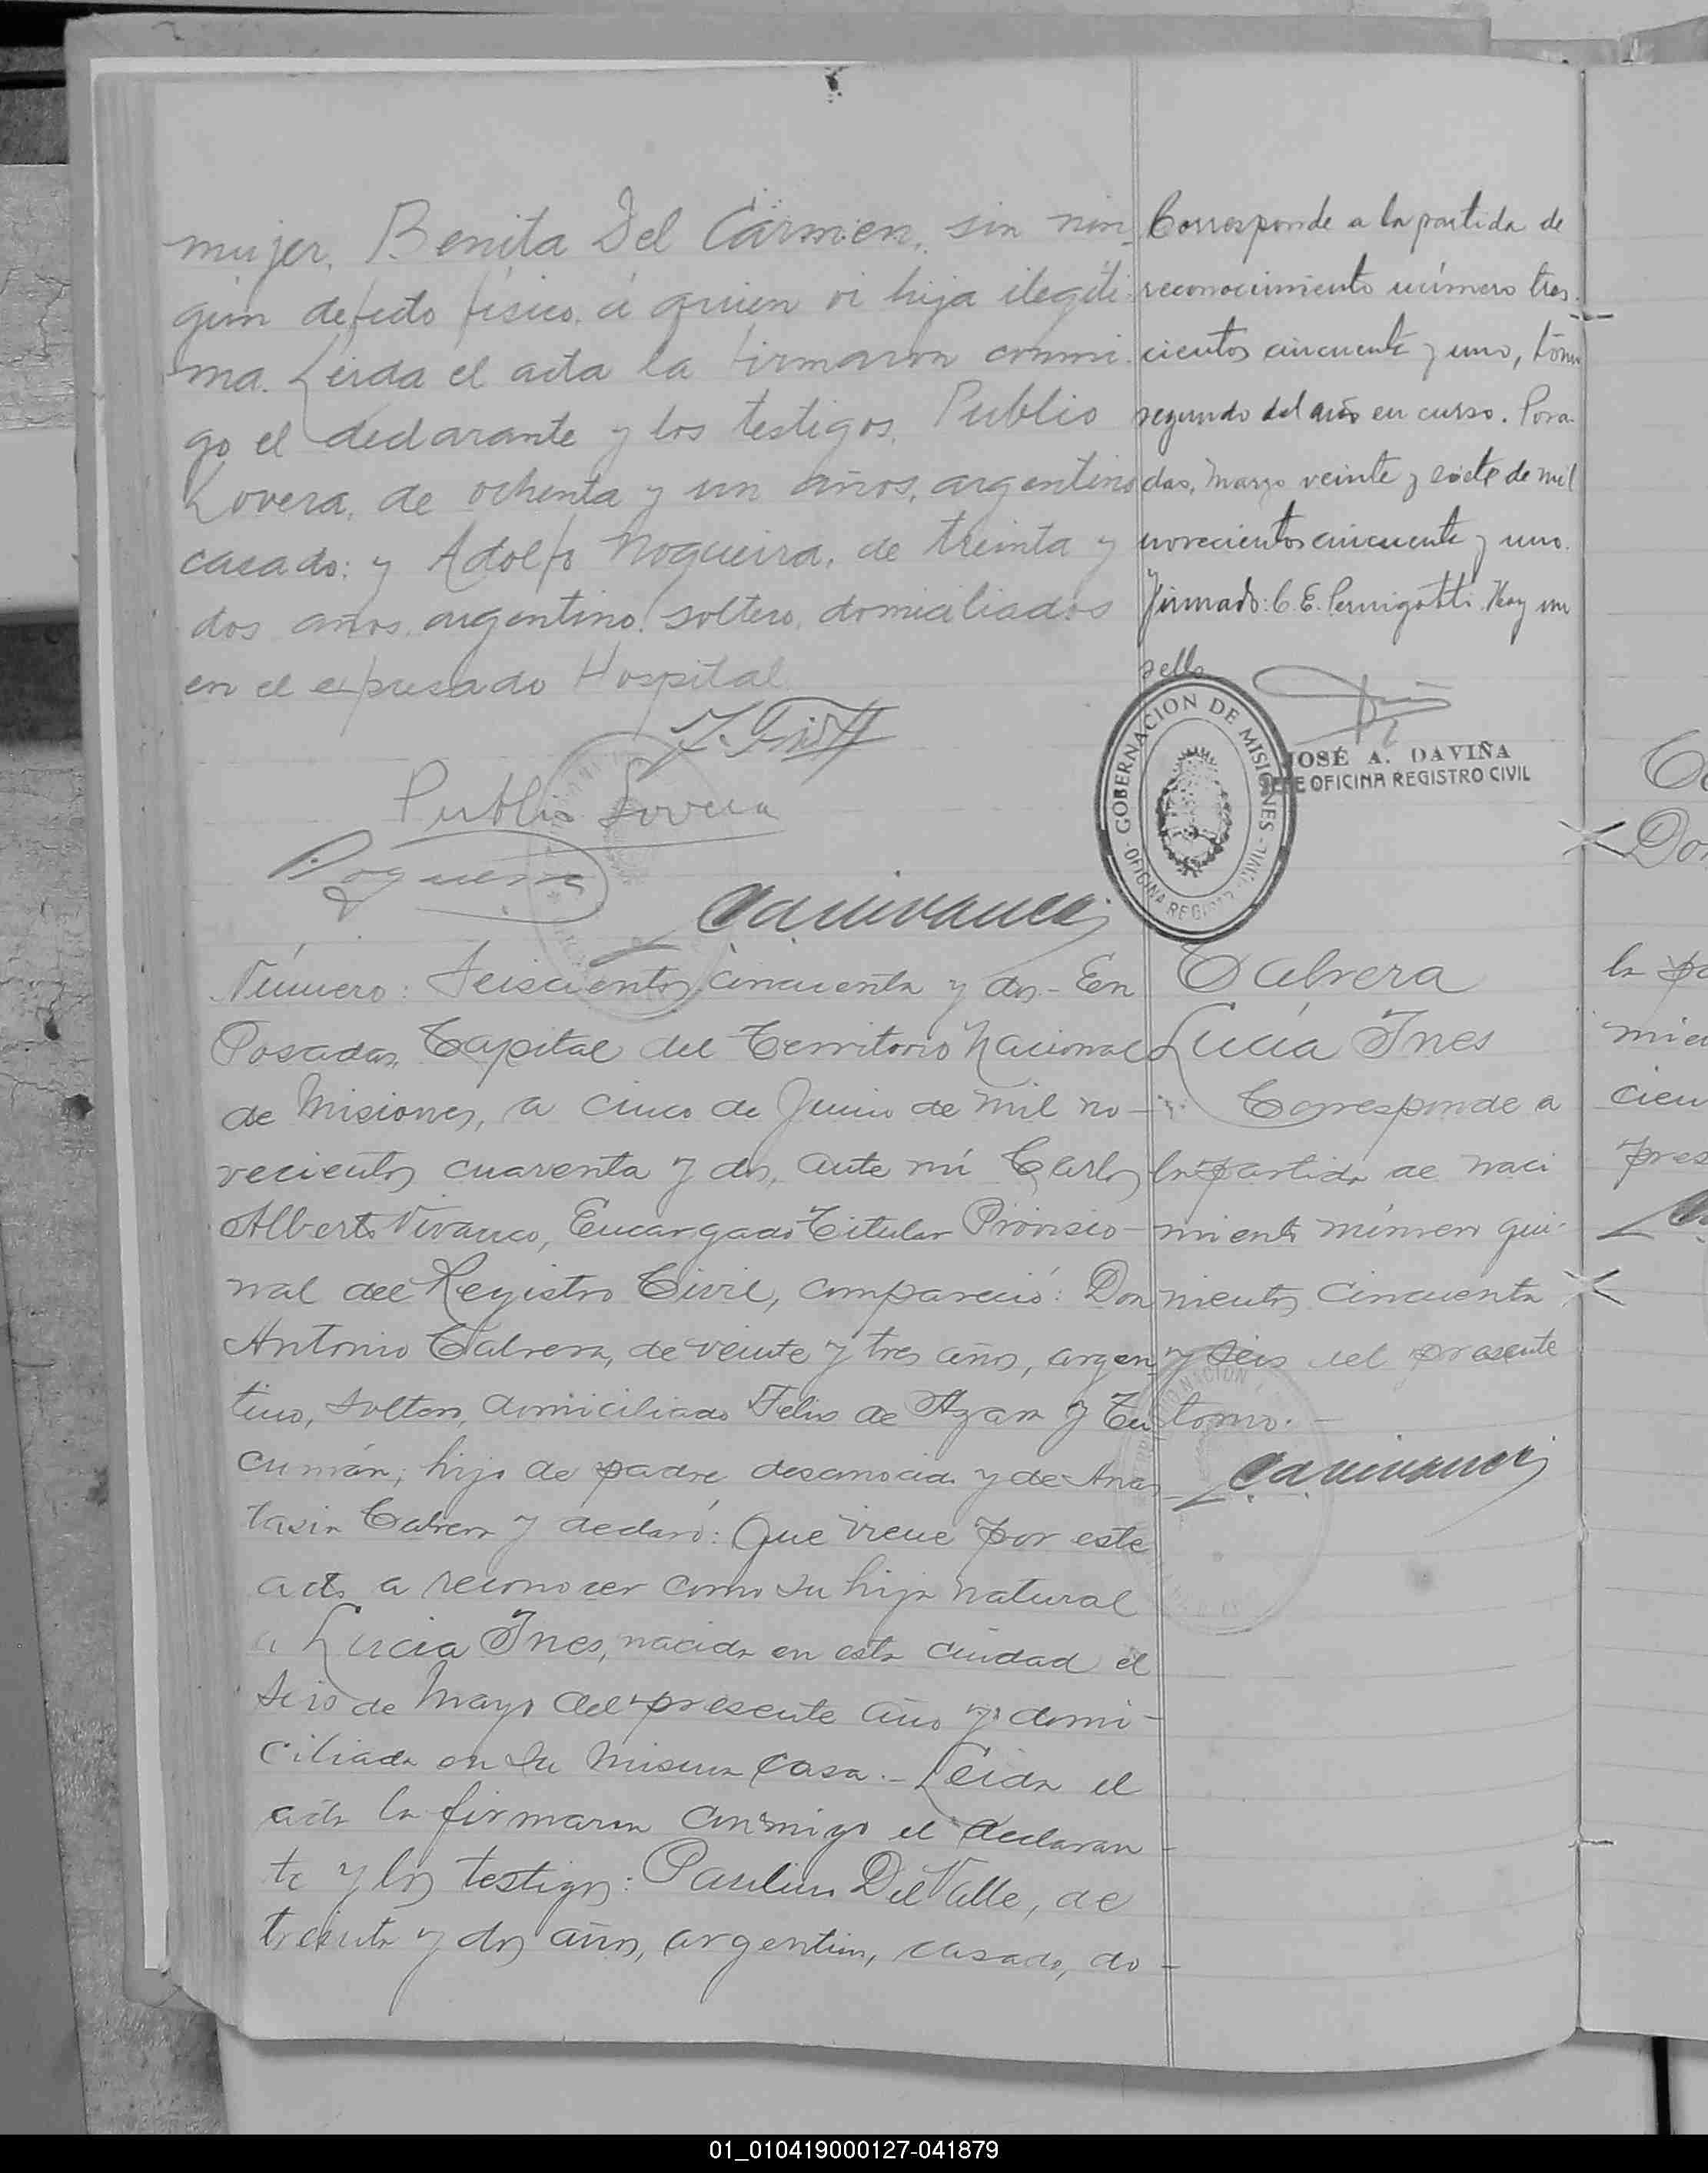 mujer, Benita Del Carmen, sin nin-
gun defecto fisico, á quien vi hija ilegiti-
ma. Leida el acta la firmaron conmi-
go el declarante y los testigos, Publio
Lovera, de ochenta y un años, argentino
casado: y Adolfo Nogueira, de treinta y
dos años, argentino, soltero, domiciliados
en el expresado Hospital
Publio Lovera
Nogueira
Número: Seiscientos cincuenta y dos - En
Posadas, Capital del Territorio Nacional
de Misiones, a cinco de Junio de mil no-
vecientos cuarenta y dos, ante mi Carlos
Alberto Vivanco, Encargado Titular Provisio-
nal del Registro Civil, compareció: Don
Antonio Cabrera, de veinte y tres años, argen-
tino, soltero, domiciliado Felix de Azara y Tu
cumán, hijo de padre desconocido y de Anas
tasia Cabrera y declaró: Que viene por este
acto a reconocer como su hija natural
a Lucia Ines, nacida en esta ciudad el
seis de Mayo del presente año y domi-
ciliada en su misma casa.- Leida el
acta la firmaron conmigo el declaran-
te y los testigos: Paulino Del Valle, de
treinta y dos años, argentino, casado, do-
Corresponde a la partida de
reconocimiento número tres-
cientos cincuenta y uno, tomo
segundo del año en curso. Posa-
das, Marzo veinte y siete de mil
novecientos cincuenta y uno.
Firmado: C. E. Pernigotti. Hay un
sello
JOSÉ A. DAVIÑA
JEFE OFICINA REGISTRO CIVIL
GOBERNACION DE MISIONES - OFICINA REGISTRO CIVIL -
Cabrera
Lucia Ines
Corresponde a
la partida de naci
miento número qui-
nientos cincuenta
y seis del presente
tomo.-
Co
Don
la pa
mien
cien
pres
01_010419000127-041879